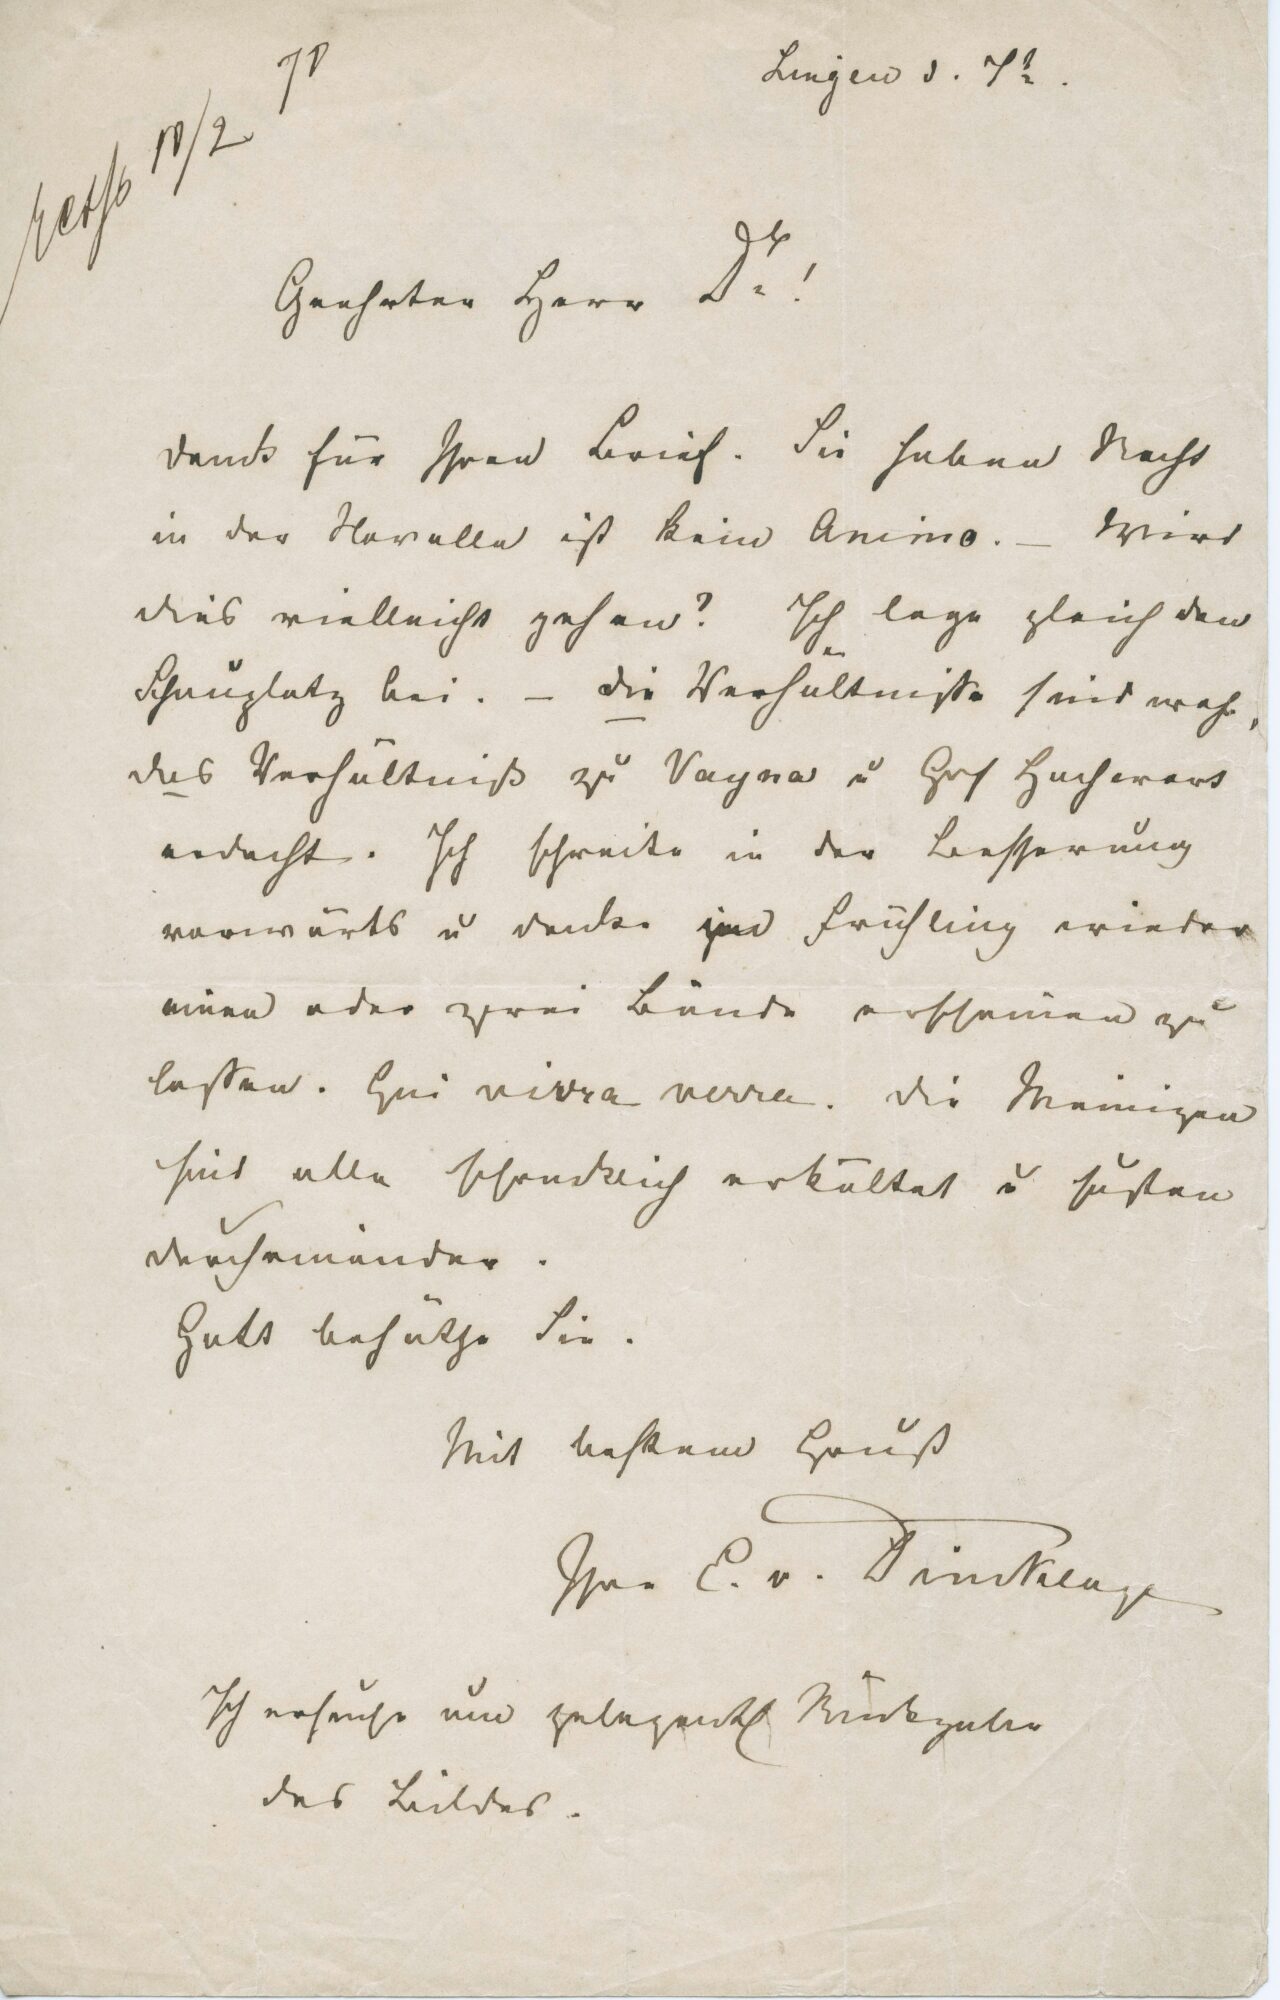 Lingen d. 7t.
10/2 70
Geehrter Herr Dr!
Dank für Ihren Brief. Sie haben Recht
in der Novelle ist kein Animo. – Wird
dies vielleicht gehen? Ich lege gleich den
Schauplatz bei. – die Verhältnisse sind wahr,
das Verhältniß zu u Graf
erdacht. Ich schreite in der Besserung
vorwärts u denke im Frühling wieder
einen oder zwei Bände erscheinen zu
lassen. Qui vivra verra. Die Meinigen
sind alle schrecklich erkältet u husten
durcheinander.
Gott behütze Sie.
Mit bestem Gruß
Ihre E. v. Dincklage
Ich ersuche um gelegentl Rückgabe
des Bildes.